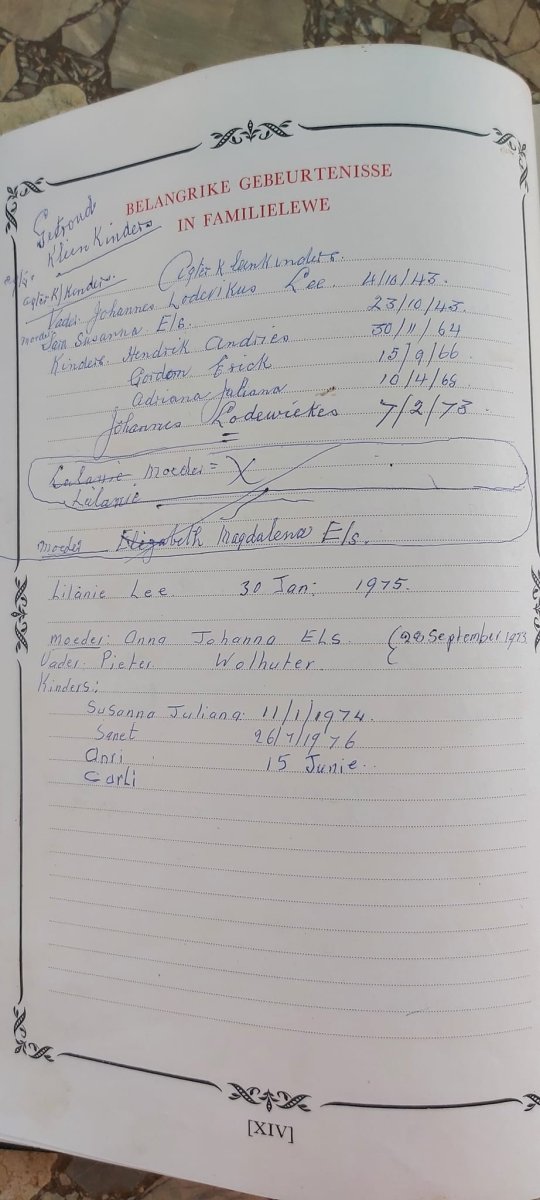 BELANGRIKE GEBEURTENISSE
IN FAMILIELEWE
Getroud
Klein Kinders
Agter K/Kinders. Agter Kleinkinders.
Vader. Johannes Loderikus Lee 4/10/43.
moeder Susanna Els. 23/10/43.
Kinders. Hendrik Andries 30/11/64
Gordon Erick 15/9/66
Adriana Juliana 10/4/68
Johannes Lodewickes 7/2/73.
Lilanie moeder = X
Lilanie
moeder Elizabeth Magdalena Els.
Lilanie Lee. 30 Jan: 1975.
moeder: Anna Johanna ELS (22 September 1973
Vader: Pieter Wolhuter (
Kinders:
Susanna Juliana. 11/1/1974.
Sanet 26/7/1976
Anri 15 Junie.
Carli
[XIV]